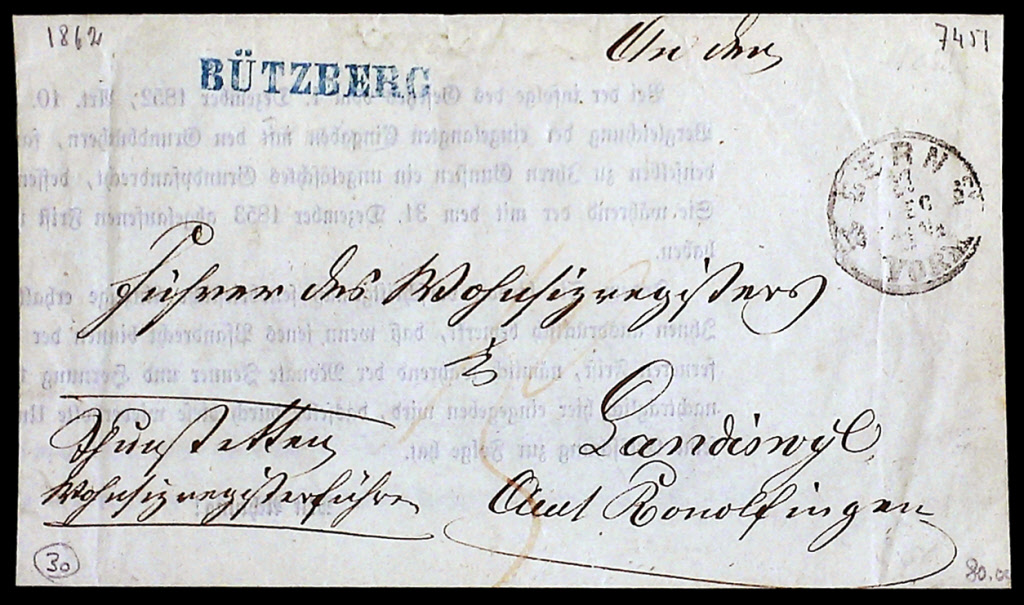 1862
7451
An den
BÜTZBERG
BERN
DEC
VORM
Führer des Wohnsizregisters
zu
Landiswyl
Amt Konolfingen
Thunstetten
Wohnsizregisterführer
30
80.00
Bei der infolge des Gesetzes vom 1. Dezember 1852, Art. 10.
Vergleichung der eingelangten Eingaben mit den Grundbüchern,
denselben zu Ihren Gunsten ein ungelöschtes Grundpfandrecht, dessen
Sie während der mit dem 31. Dezember 1853 abgelaufenen Frist
haben.
Ihnen bemerkt, daß wenn jenes Pfandrecht binnen der
fernern Frist, während der Monate Jenner und Hornung
nachträglich hier eingegeben wird,
zur Folge hat.